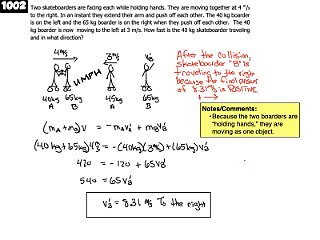 1002
Two skateboarders are facing each while holding hands. They are moving together at 4 m/s
to the right. In an instant they extend their arm and push off each other. The 40 kg boarder
is on the left and the 65 kg boarder is on the right when they push off each other. The 40
kg boarder is now moving to the left at 3 m/s. How fast is the 40 kg skateboarder traveling
and in what direction?
4 m/s
3 m/s
v'B
UMPH
40kg 65kg 45kg 65kg
A B A B
After the collision,
skateboarder "B" is
traveling to the right
because the final answer
of 8.31 m/s is positive.
Notes/Comments:
• Because the two boarders are
"holding hands," they are
moving as one object.
(mA + mB)v = -mAv'A + mBv'B
420 = -120 + 65v'B
540 = 65v'B
v'B = 8.31 m/s To the right